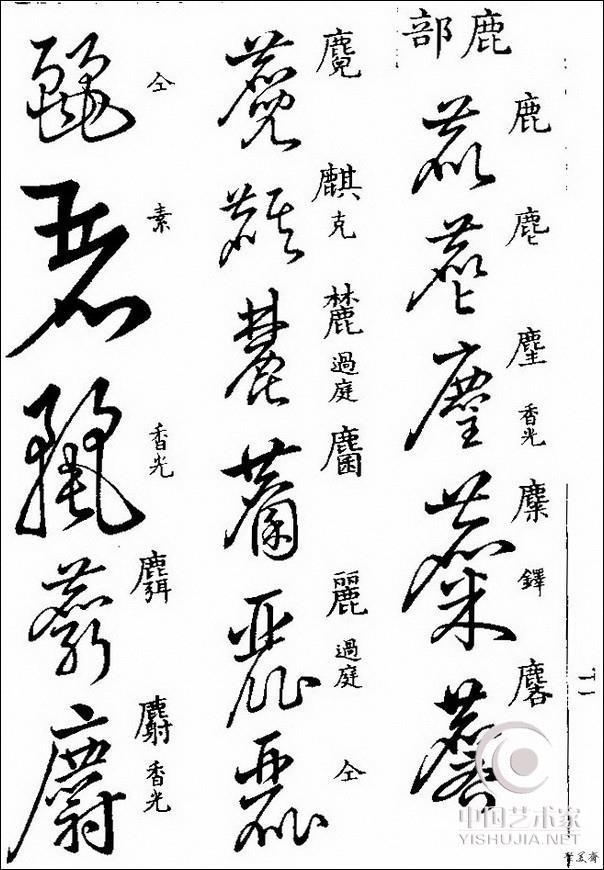 鹿部
鹿
麀
麈 香光
麋 鐸
麑
麒 克
麓 過庭
麕
麗 過庭
仝
仝
素
香光
麛
麝 香光
中国艺术家
YISHUJIA.NET